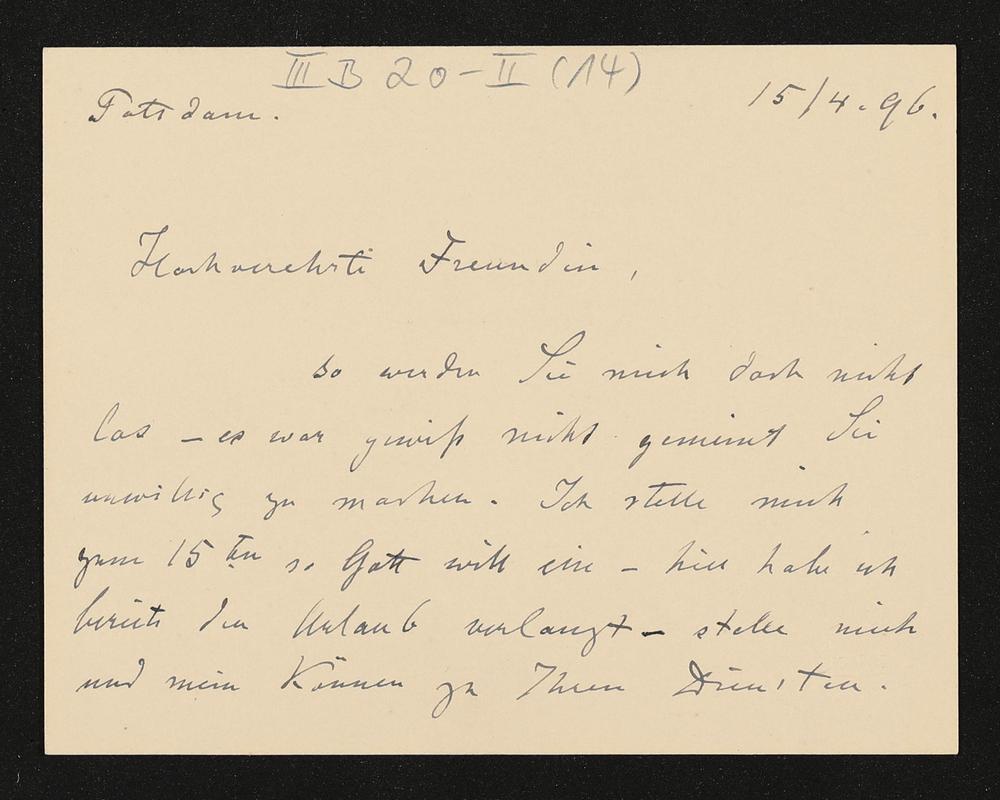 III B 20-II (14)
Potsdam. 15/4.96.
Hochverehrte Freundin,
so werden Sie mich doch nicht
los – es war gewiß nicht gemeint Sie
unwillig zu machen. Ich stelle mich
zum 15ten so Gott will ein – hier habe ich
bereits den Urlaub verlangt – stelle mich
und mein Können zu Ihren Diensten.